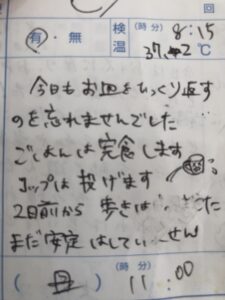 回
有・無 検温 (時分) 8:15
37.2℃
今日もお皿をひっくり返す
のを忘れませんでした
ごはんは完食します
コップは投げます
2日前から 歩きは
まだ安定はしていません
(母) (時分) 11:00